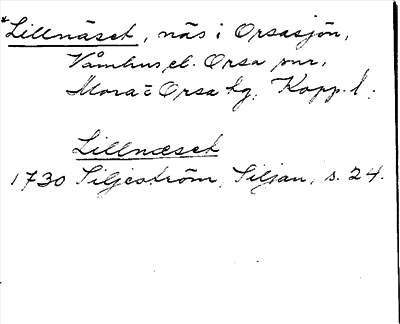 *Lillnäset, näs i Orsasjön,
Våmhus el. Orsa snr,
Mora o Orsa tg, Kopp. l.
Lillnæset
1730 Siljeström, Siljan, s. 24.